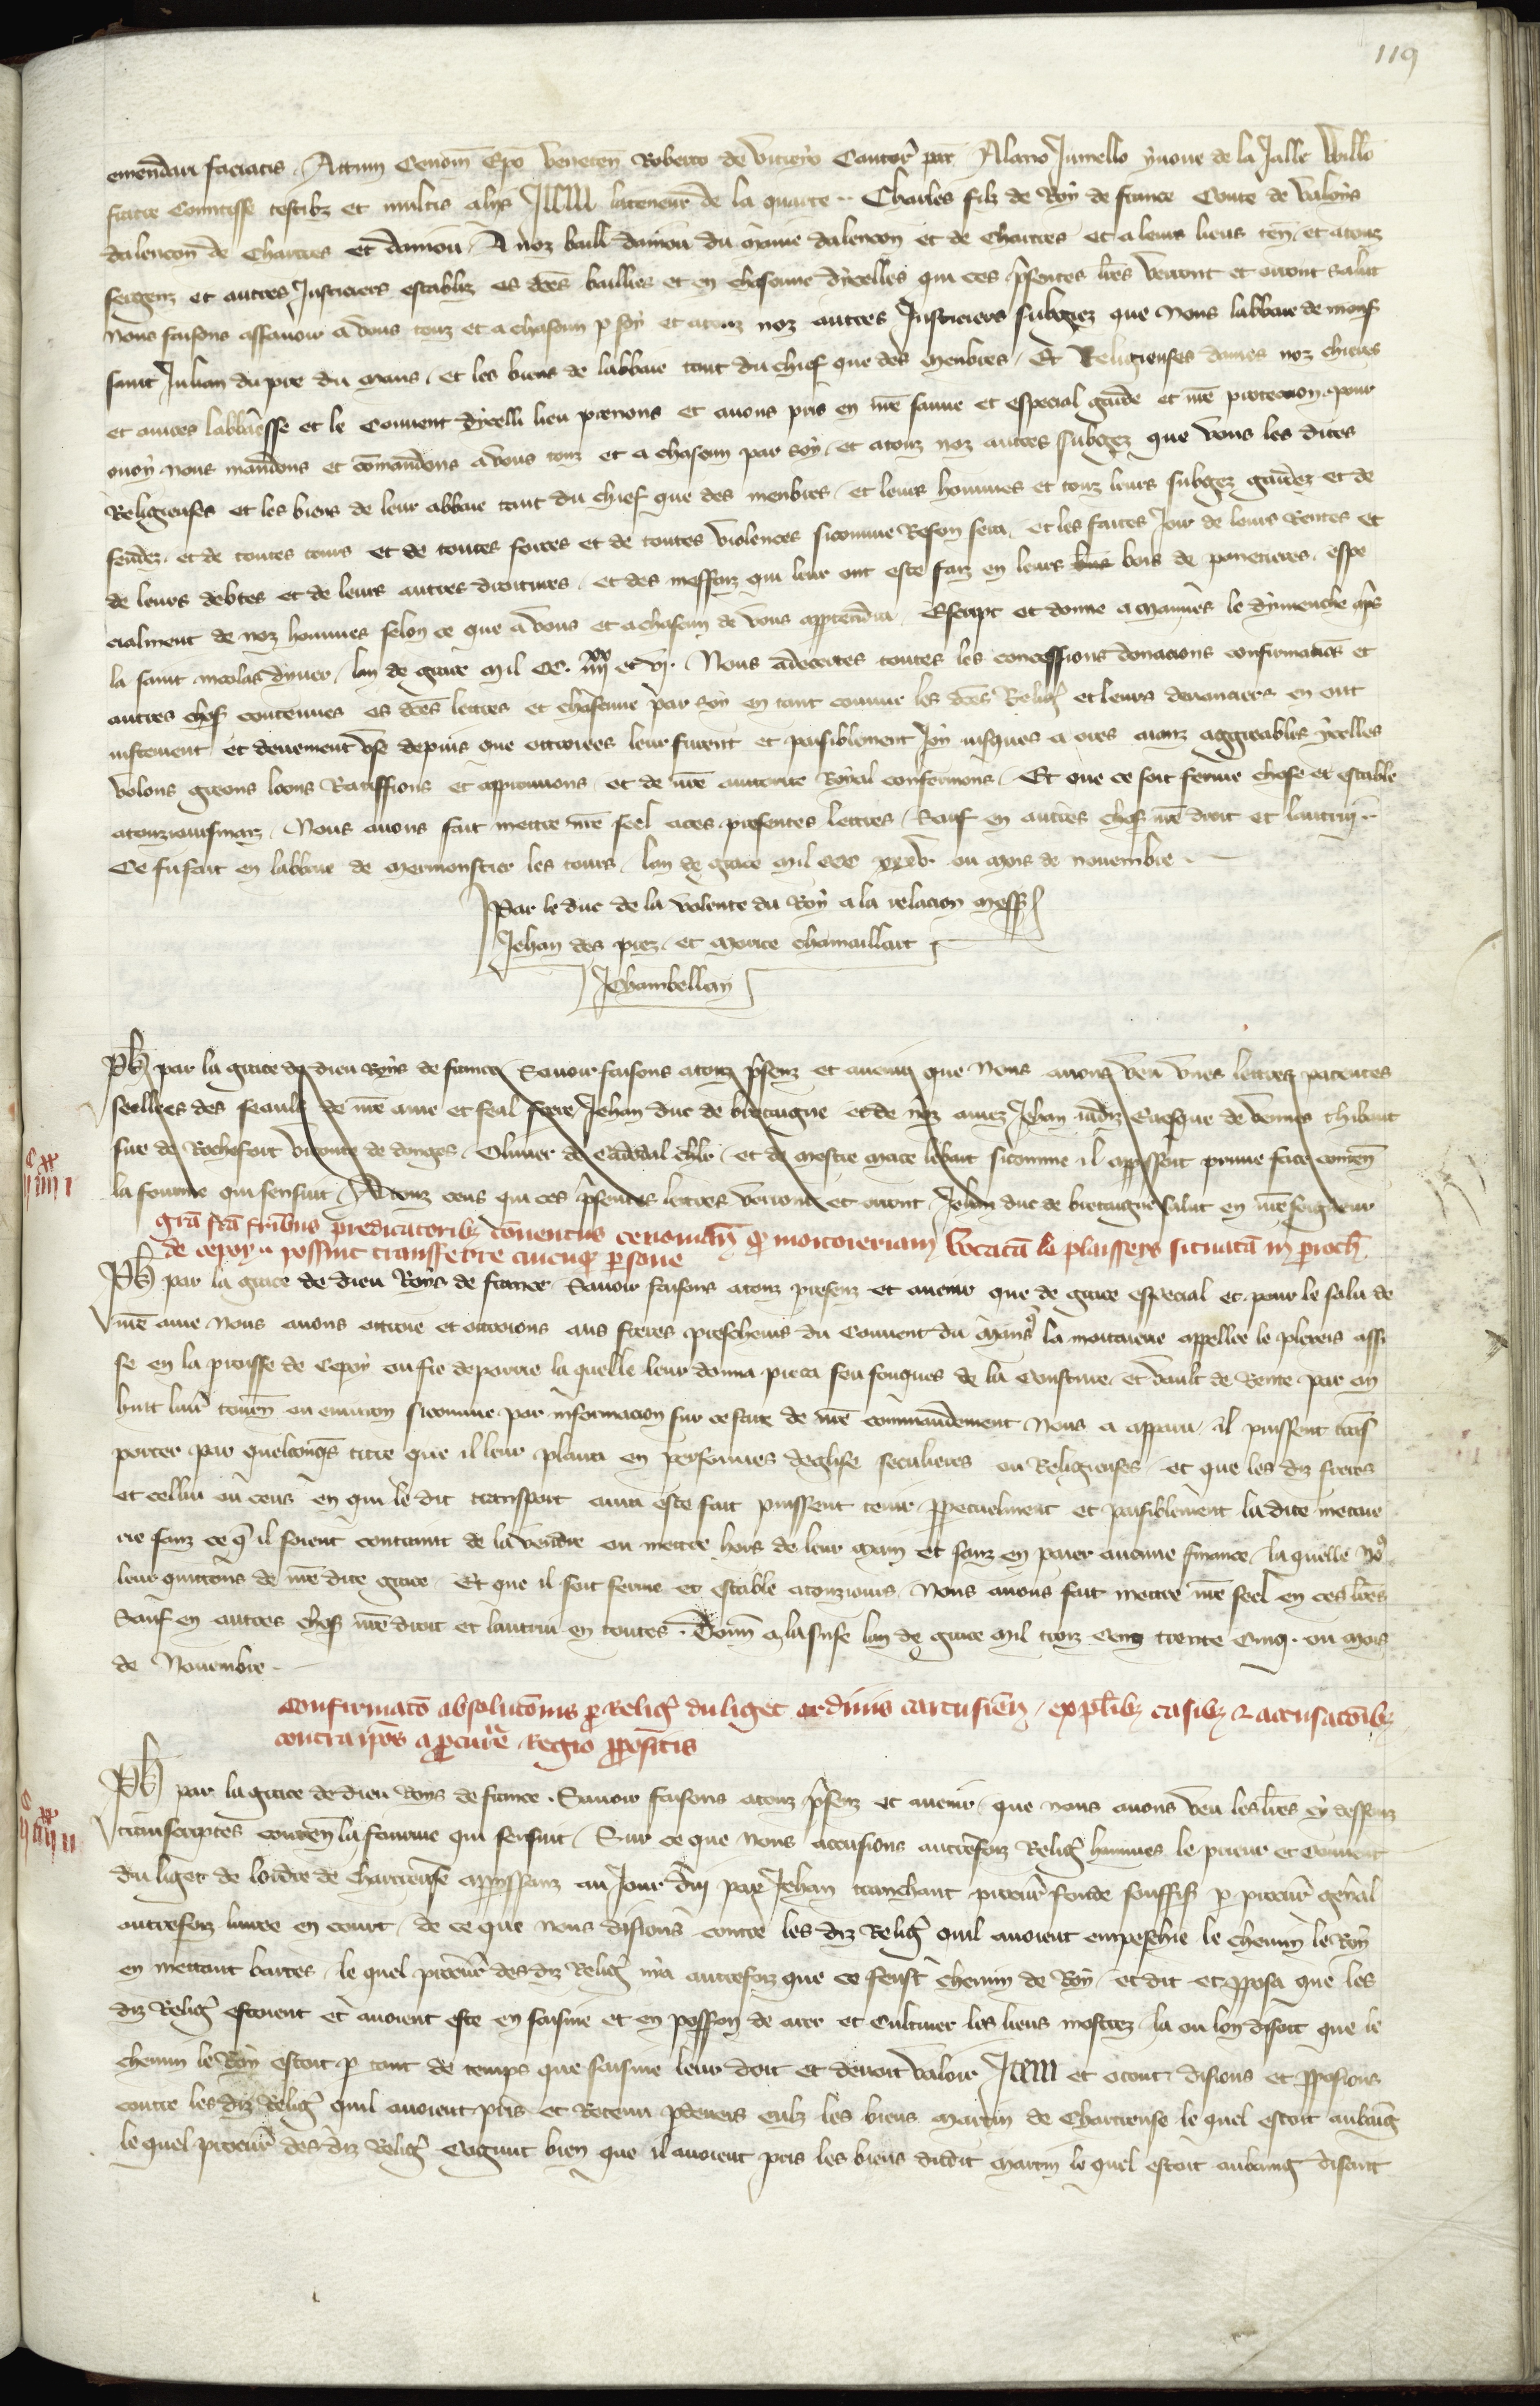 119
emendari faciatis. Actum Cenom Epo Veneten Roberto de Viceyo Cantor par Alano Jumello yvone de la Jalle Willo
fratre Comitisse testibz et multis aliis Item la teneur de la quarte. Charles filz de Roy de france Conte de Valoys
dalencon de Chartres et damou. A noz baill damou du mainne dalencon et de Chartres et a leurs lieus ten et a touz
sergenz et autres Justiciers establiz es dces baillies et en chascune dycelles qui ces psentes lres verront et orront salut
Nous faisons assavoir a vous touz et a chascun p soy et a touz noz autres Justiciers subgiez que Nous labbaie de mons
saint Julian du pre du mans, et les biens de labbaie tant du chief que des menbres, Et Religieuses dames noz chieres
et amees labbaesse et le Couvent dycelli lieu prenons et avons pris en nre sauve et especial garde et nre proteccion. pour
quoy nous mandons et comandons a vous touz et a chascun par soy, et a touz noz autres subgez que vous les dites
Religieuses et les biens de leur abbaie tant du chief que des menbres, et leurs hommes et touz leurs subgez gardez et de
fendez, et de toutes tours et de toutes forces et de toutes violences sicomme Reson sera, et les faites Joir de leurs Rentes et
de leurs debtes et de leurs autres droitures, et des meffaiz qui leur ont este faiz en leurs bois de poneceres, espe
cialment de noz hommes selon ce que a vous et a chascun de vous appartendra. Escript et donne a Mamers le dymenche aps
la saint nicolas dyver, lan de grace Mil CC. iiijxx et vj. Nous adecertes toutes les concessions donacions confirmacions et
autres choses contenues es dces lettres et chascune par soy en tant comme les dces Relig et leurs devanciers en ont
justement et deuement use depuis que ottroiees leur furent et paisiblement Joy jusques a ores aianz aggreables ycelles
volons greons loons Ratiffions et approuvons, et de nre auctorite Royal confermons, Et que ce soit ferme chose et estable
a touziours mais, Nous avons fait mettre nre seel a ces presentes lettres, Sauf en autres choses nre droit et lautruy.
Ce fu fait en labbaie de mermonstier les tours, lan de grace Mil CCC xxxv. ou mois de novembre.
Par le duc de la volente du Roy a la relacion mess
Jehan des prez, et Morice chamaillart
Chambellan
Ph par la grace de dieu Roys de france, Savoir faisons a touz psenz et avenir que Nous avons veu unes lettres patentes
seellees des seauls de nre ame et feal frere Jehan duc de bretaigne et de noz amez Jehan jadiz Evesque de Vennes thibaut
sire de Rochefort Viconte de donges. Olivier de chlr, et de mestre mace lebart sicomme il apparoissoit prime face conten
la fourme qui sensuit, A touz ceus qui ces psentes lettres verront et orront Jehan duc de bretaigne salut en nre seigneur
gra fca fribus predicatoribz conventus cenoman q moitoieriam vocata le plaisseys situata in proch
de cepoy possint transferre cuicuq persone
Ph par la grace de dieu Roys de france. Savoir faisons a touz presenz et avenir que de grace especial et pour le salu de
nre ame Nous avons ottroie et ottroions aus freres prescheurs du Couvent du mans la moitoierie appellee le plesseis assi
se en la parroisse de Cepoy ou fie de porrie la quelle leur donna pieca feu fouques de la Consture, et vault de Rente par an
huit livr tourn ou environ sicomme par informacion sur ce faite de nre commandement Nous a apparu, il puissent tras
porter par quelconqs titre que il leur plaira en personnes deglise seculieres ou Religieuses et que les diz freres
et cellui ou ceus en qui le dit transport aura este fait puissent tenir ppetuelment et paisiblement la dite moitoie
rie sanz ce q il soient contraint de la vendre ou mettre hors de leur main et sanz en paier aucune finance, la quelle nos
leur quittons de nre dite grace. Et que il soit ferme et estable a touziours, Nous avons fait mettre nre seel en ces lres
Sauf en autres choses nre droit et lautrui en toutes. Donn a la suse lan de grace Mil trois Cenz trente Cinq. ou mois
de Novembre.
Confirmaco absolutonis p Relig du liget ordinis cartusien, ex plibz casibz 2 accusacoibz
contra ipos a pcurre Regio ppositis
Ph par la grace de dieu Roys de france. Savoir faisons a touz psenz et avenir, que nous avons veu les lres cy dessouz
transcriptes conten la fourme qui sensuit, Sur ce que Nous accusions autrefoiz Relig hommes le prieur et Couvent
du liget de lordre de Chartreuse apparissanz au Jour duy par Jehan tranchant procur fonde souffis p procur genral
autrefoiz livree en court, de ce que Nous disions contre les diz Relig quil avoient empeschie le chemin le Roy
en mettant barres, le quel procur des diz Relig nia autrefoiz que ce feust chemin de Roy, et dit et pposa que les
diz Relig estoient et avoient este en saisine et en possession de arer et cultiver les lieus mostrez, la ou lon disoit que le
chemin le Roy estoit p tant de temps que saisine leur doit et devoit valoir Item et a tout disions et pposions
contre les diz Relig quil avoient pris et Retenu pdevers eulz les biens Martin de Chartreuse le quel estoit aubaig
le quel procur des diz Relig cognut bien que il avoient pris les biens dudit Martin le quel estoit aubaing disant